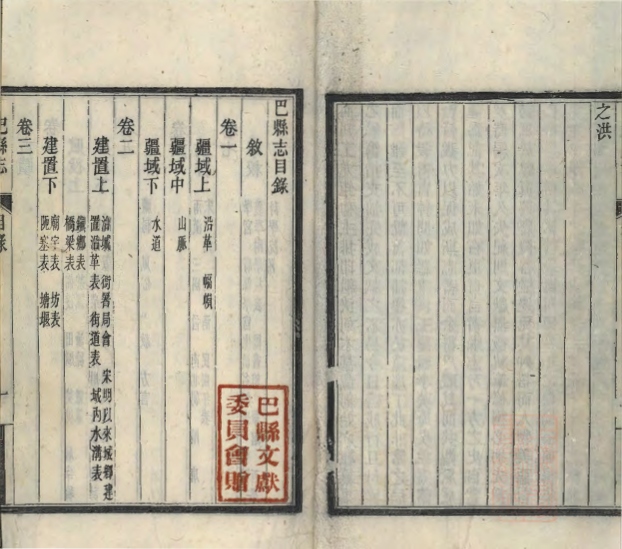 之洪
巴縣志目錄
敘
卷一
疆域上
沿革 幅㡯
疆域中
山脈
疆域下
水道
卷二
建置上
治城 衙署局會 宋明以來城鄉建
置沿革表 街道表 城內水溝表
鎮鄉表
橋梁表
建置下
廟宇表 坊表
阨塞表 塘堰
卷三
巴縣志
目錄
一
巴縣文獻
委員會贈